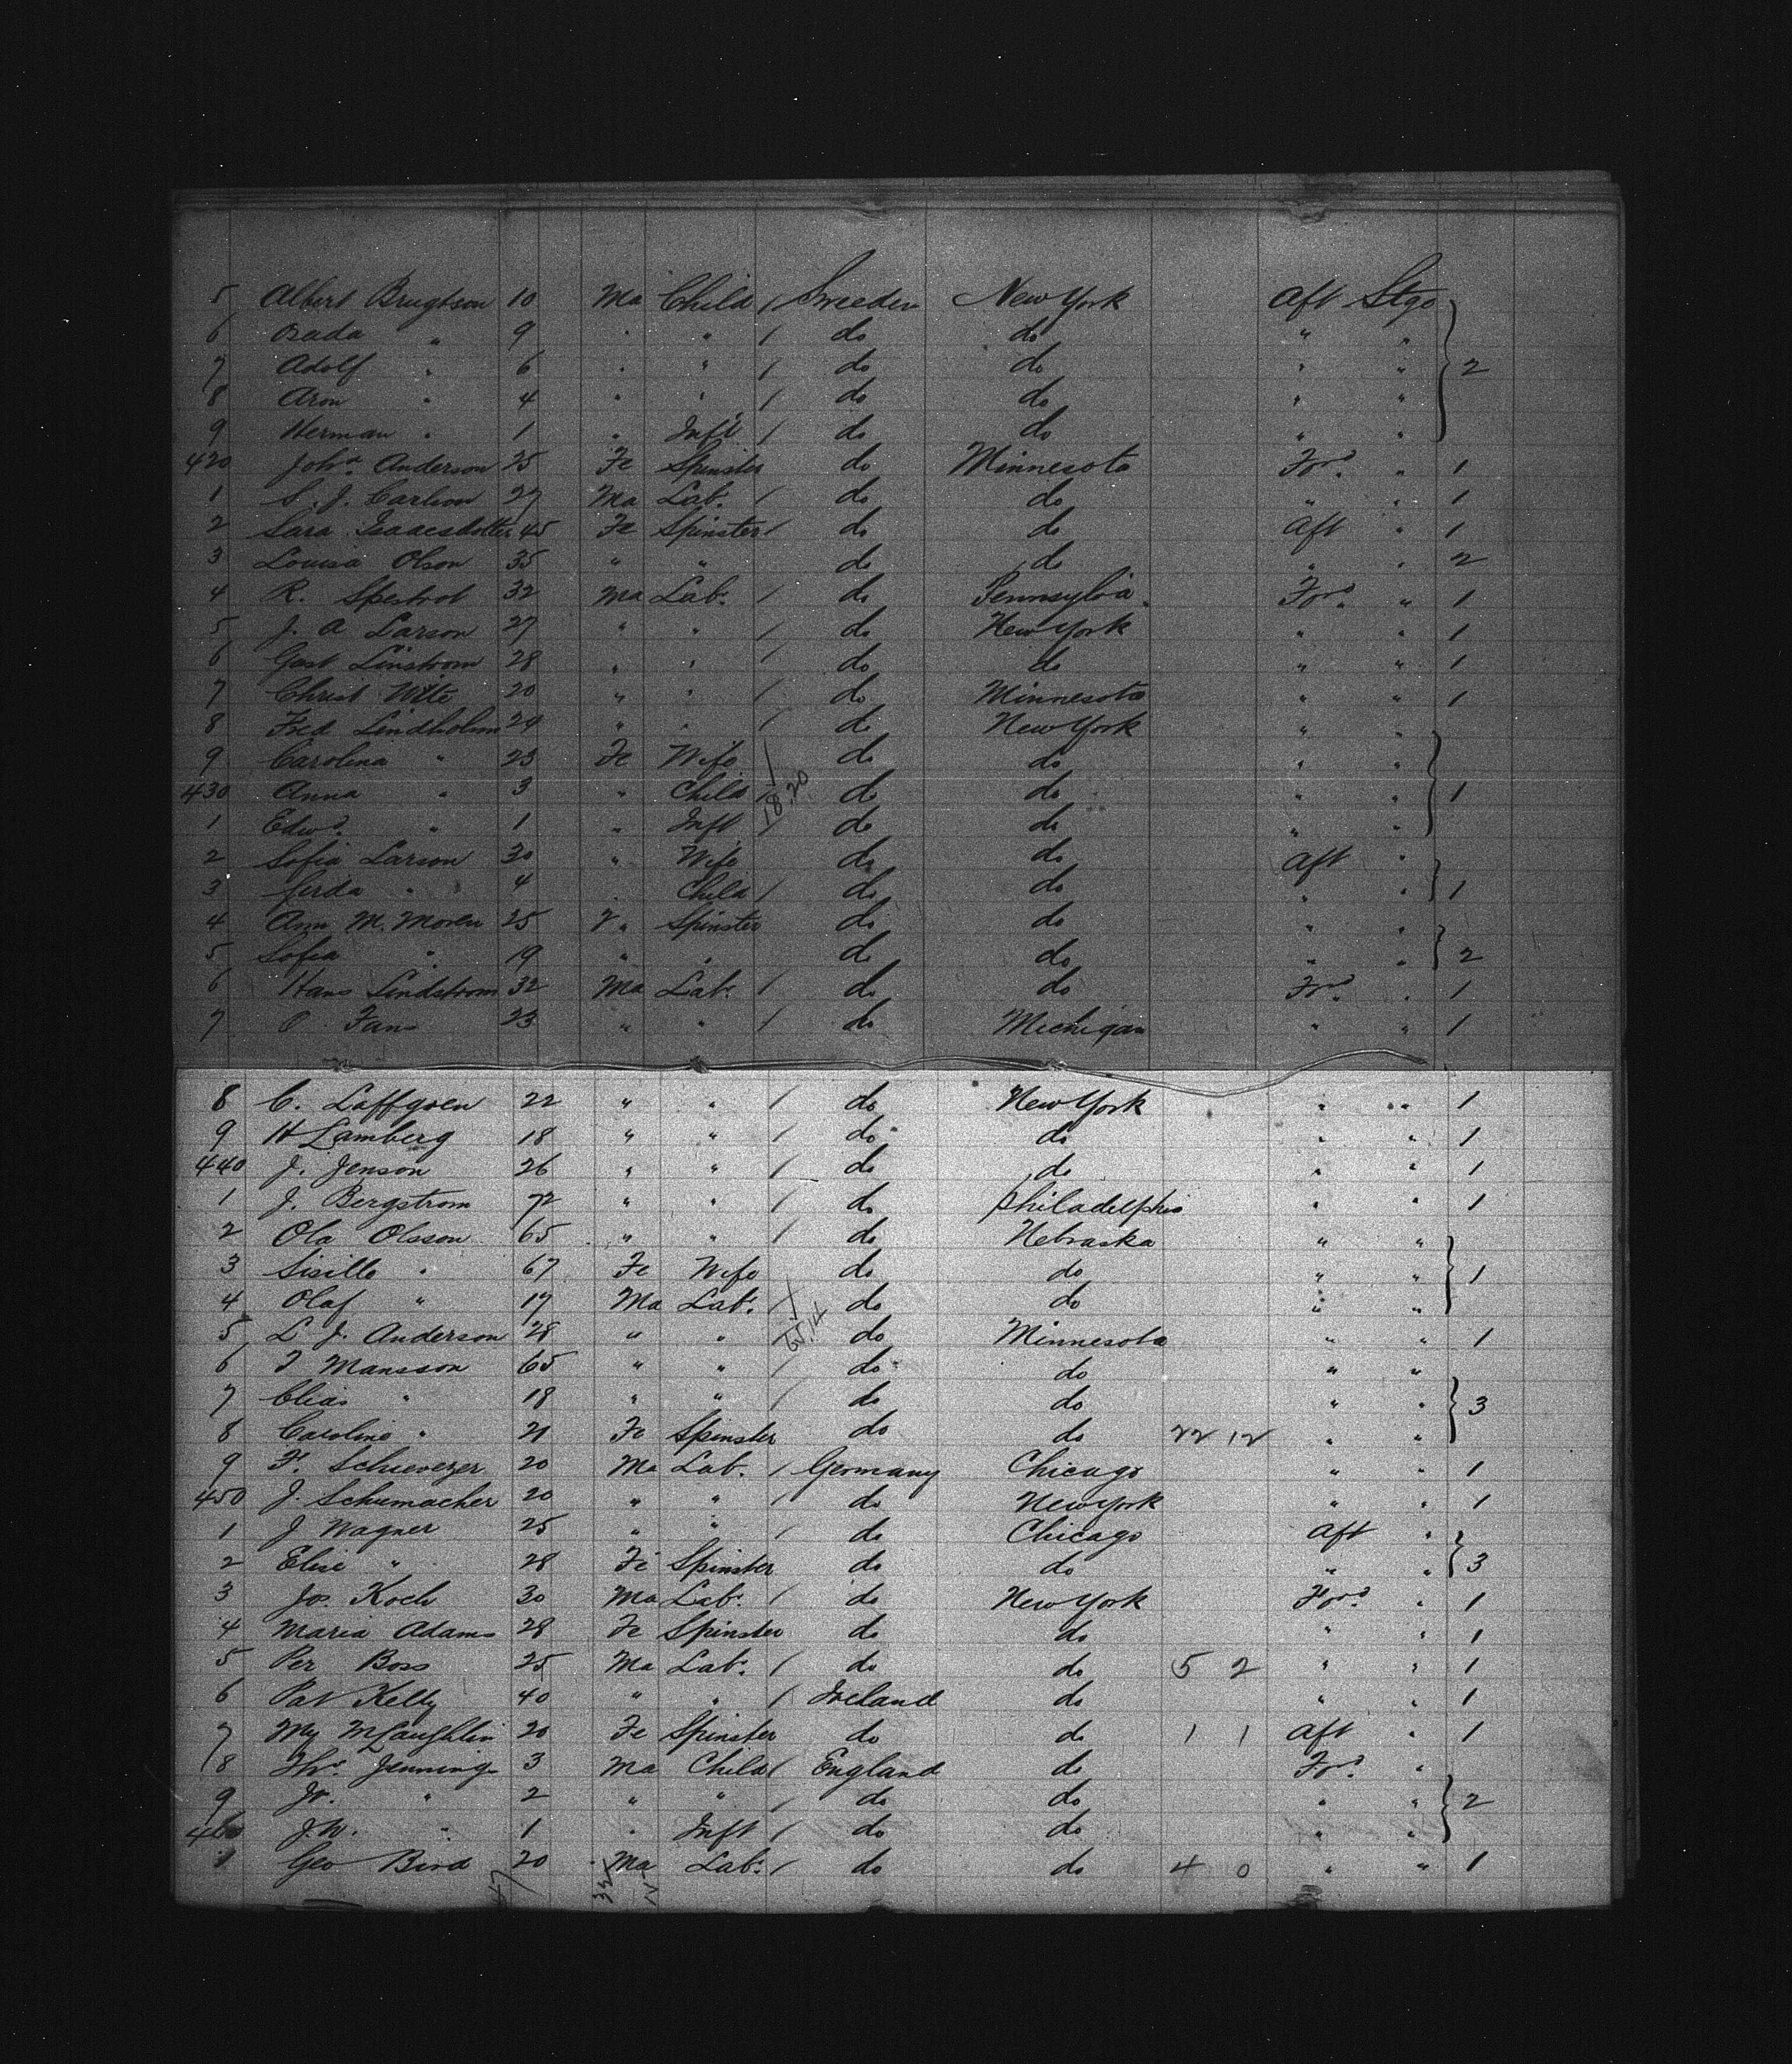 5 Albert Brugtson 10 Ma Child / Sweden New York Aft Stge
6 Bada " 9 " " / do do " "
7 Adolf " 6 " " / do do " " 2
8 Aron " 4 " " / do do " "
9 Herman " 1 " Inft / do do " "
420 Joha. Anderson 25 Fe Spinster do Minnesota Ford. " 1
1 S. J. Carlson 27 Ma Lab. / do do " " 1
2 Sara Isaacsdotter 45 Fe Spinster / do do Aft " 1
3 Louisa Olson 35 " " do do " " 2
4 R. Spestrot 32 Ma Lab. / do Pennsylva. Ford. " 1
5 J. A Larson 27 " " / do New York " " 1
6 Gust Linstrom 28 " " / do do " " 1
7 Christ Witte 20 " " / do Minnesota " " 1
8 Fred Lindholm 29 " " / do New York " "
9 Carolina " 23 Fe Wife / do do " "
430 Anna " 3 " Child / 18.20 do do " " 1
1 Edwd. " 1 " Inft / do do " "
2 Sofia Larson 30 " Wife do do Aft "
3 Gerda " 4 " Child / do do " " 1
4 Ann M. Moren 25 " Spinster do do " "
5 Sofia " 19 " " do do " " 2
6 Hans Lindstrom 32 Ma Lab. / do do Ford. " 1
7 O Fans 23 " " / do Michigan " " 1
8 C. Laffgren 22 " " / do New York " " 1
9 H Lamberg 18 " " / do do " " 1
440 J. Jenson 26 " " / do do " " 1
1 J. Bergstrom 72 " " / do Philadelphia " " 1
2 Ola Olsson 65 " " / do Nebraska " "
3 Sisilla " 67 Fe Wife do do " " 1
4 Olaf " 17 Ma Lab. / do do " "
5 L. J. Anderson 28 " " do Minnesota " " 1
6 T Mansson 65 " " / do do " "
7 Elias " 18 " " / do do " " 3
8 Caroline " 21 Fe Spinster do do 22 12 " "
9 F. Schievezer 20 Ma Lab. / Germany Chicago " " 1
450 J. Schumacher 20 " " / do New York " " 1
1 J Wagner 25 " " / do Chicago Aft "
2 Elise " 28 Fe Spinster do do " " 3
3 Jos. Koch 30 Ma Lab. / do New York Ford. " 1
4 Maria Adams 28 Fe Spinster do do " " 1
5 Per Boss 25 Ma Lab. / do do 5 2 " " 1
6 Pat Kelly 40 " " / Ireland do " " 1
7 My McLaughlin 20 Fe Spinster do do 1 1 Aft " 1
8 Thos. Jennings 3 Ma Child / England do Ford. "
9 Jo. " 2 " " / do do " " 2
460 J. W. " 1 " Inft / do do " "
1 Geo Bird 20 Ma Lab. / do do 4 0 " " 1
47